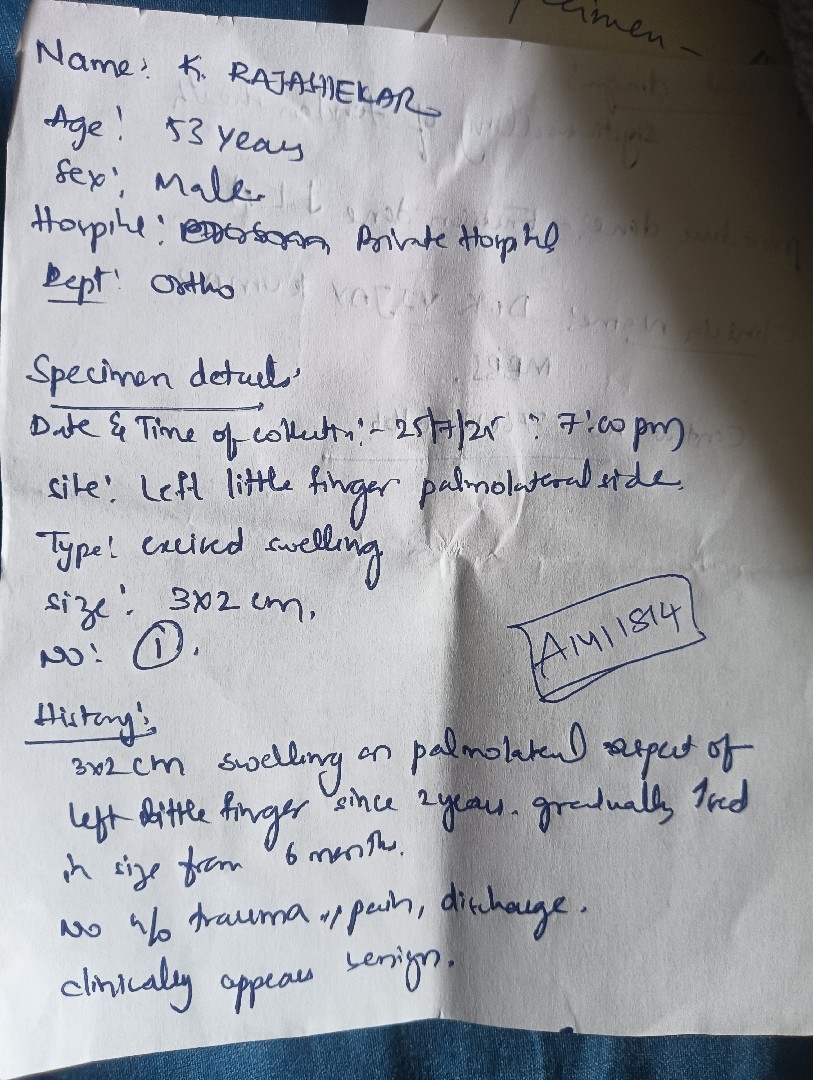 ecimen -
Name: K. RAJASHEKAR
Age: 53 years
Sex: Male
Hospitl: Private Hospitl
Dept: Ortho
Specimen details:
Date & Time of collectn:- 25/7/25 : 7:00 pm
site: Left little finger palmolateral side.
Type: excised swelling
size: 3x2 cm.
NO: 1.
A1411814
History:
3x2 cm swelling on palmolateral aspect of
left little finger since 2 years. gradually ↑sed
in size from 6 months.
No h/o trauma, pain, discharge.
clinically appears benign.